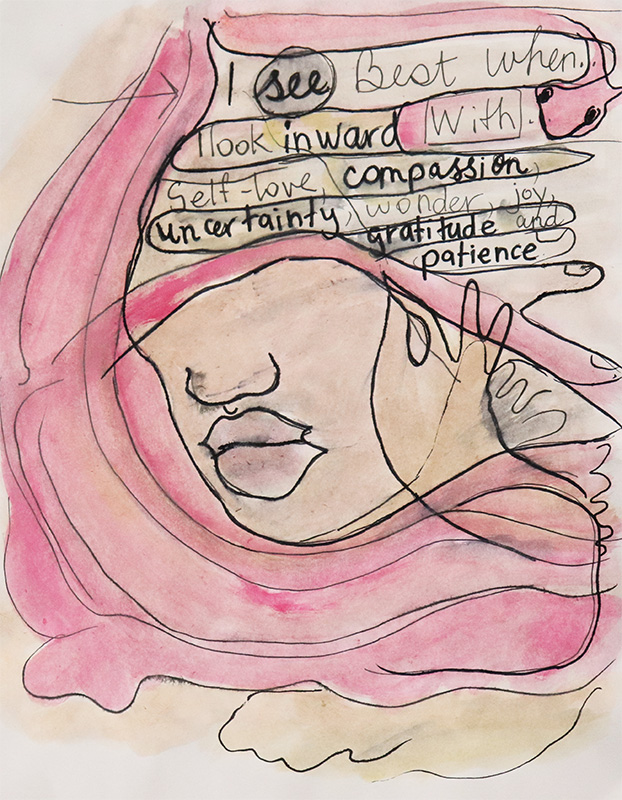 I see Best when.
I look inward With.
Self-love, compassion,
uncertainty, wonder, joy,
gratitude and
patience